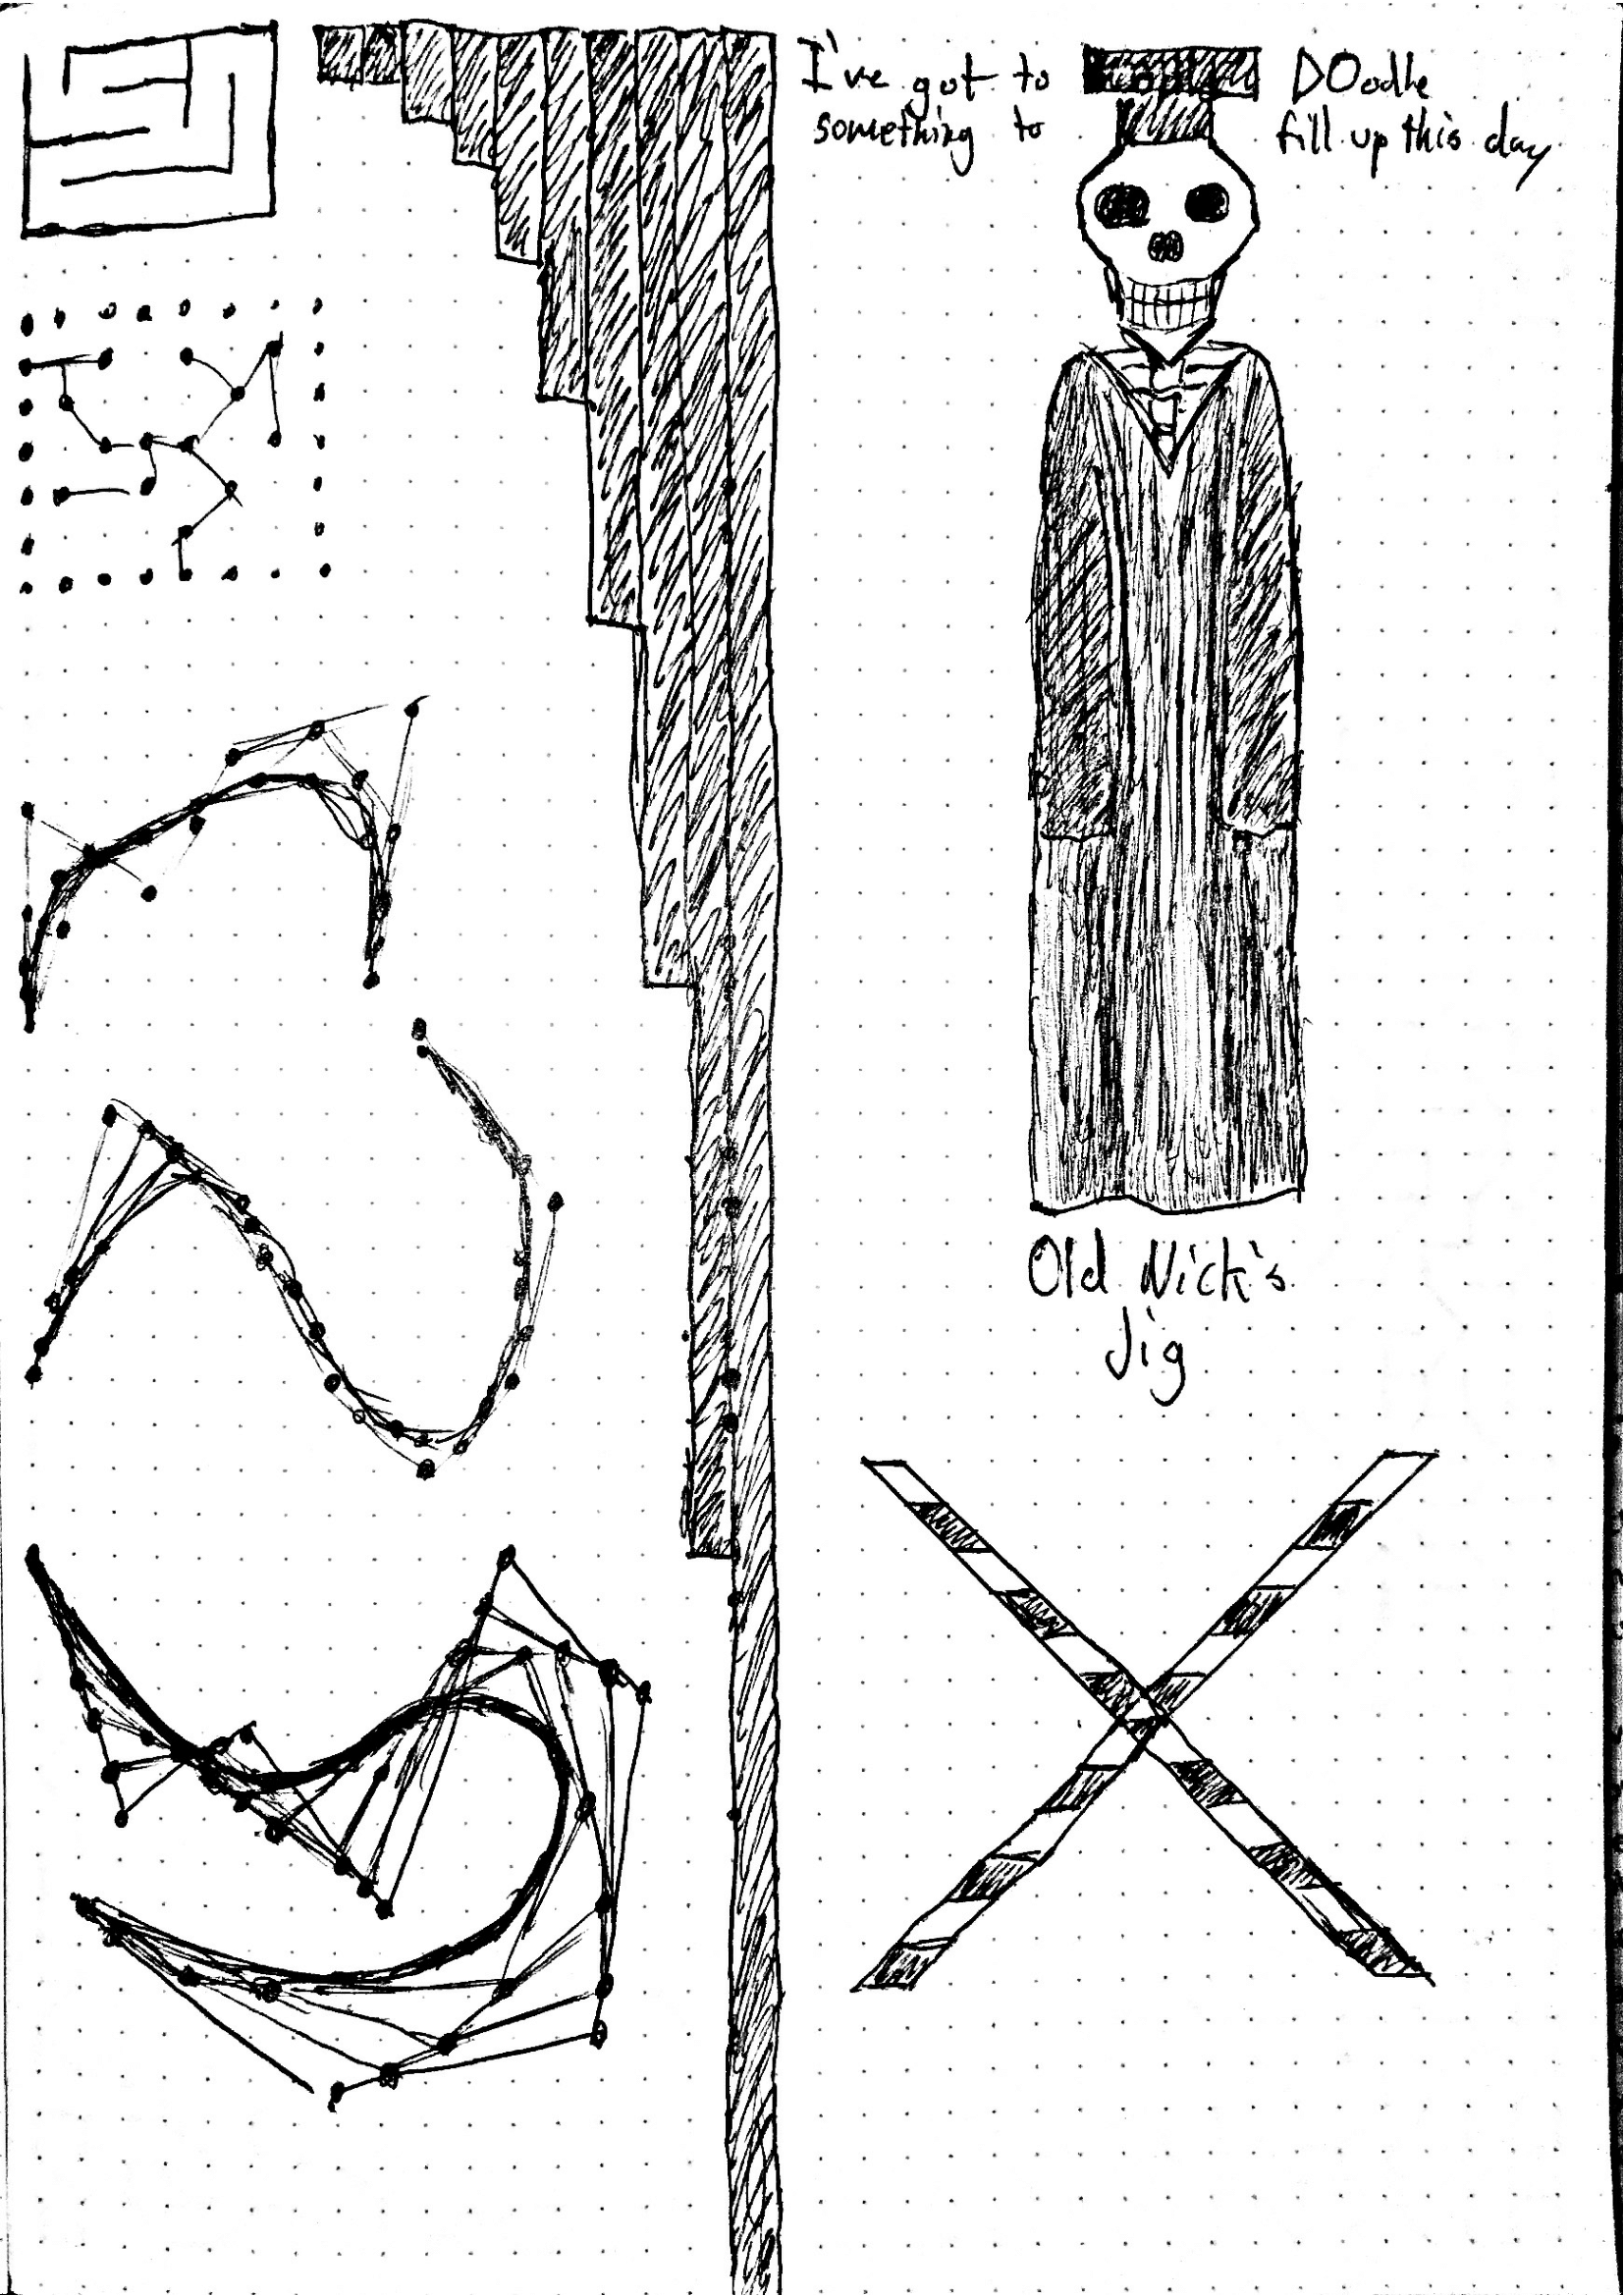 I've got to DOodle
something to fill up this day
Old Nick's
Jig